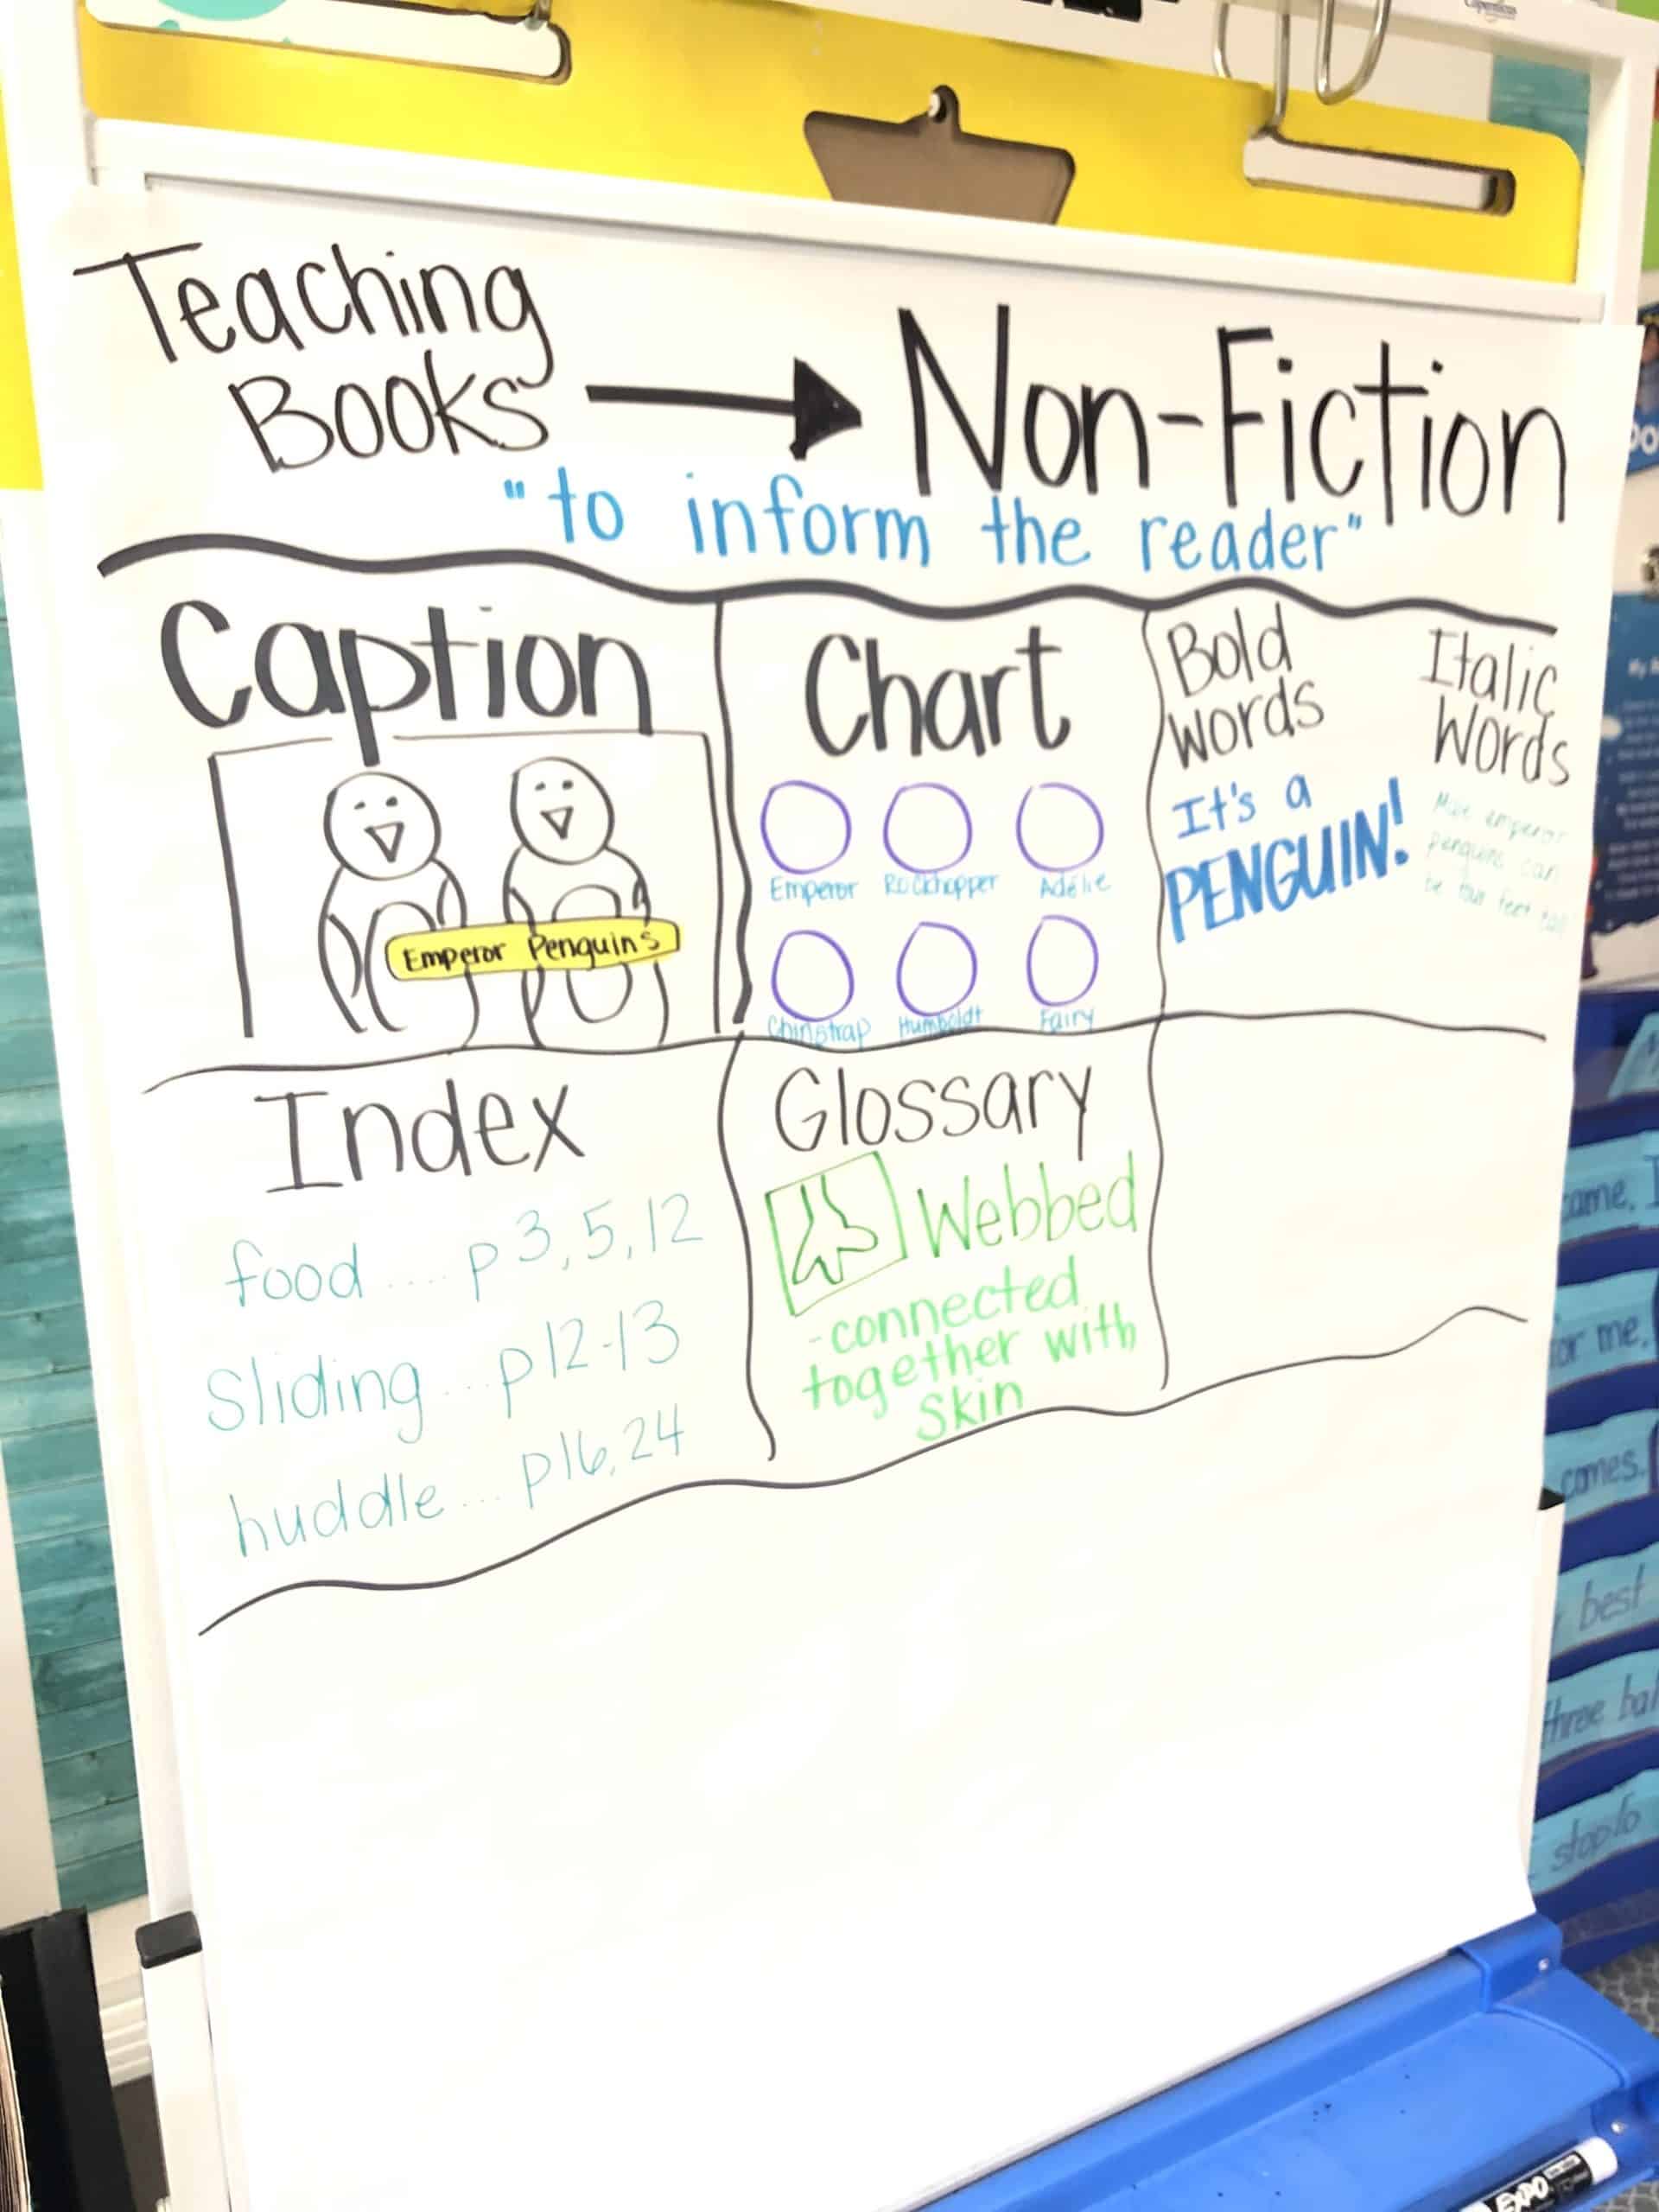 Teaching
Books
Non-Fiction
"to inform the reader"
Caption
Emperor Penguins
Chart
Emperor Rockhopper Adélie
Chinstrap Humboldt Fairy
Bold
words
It's a
PENGUIN!
Italic
Words
emperor
penguins can
be four feet tall
Index
food .... p 3, 5, 12
Sliding ... p 12-13
huddle ... p 16, 24
Glossary
Webbed
-connected
together with
skin
came, I
for me.
comes.
best
three
EXPO